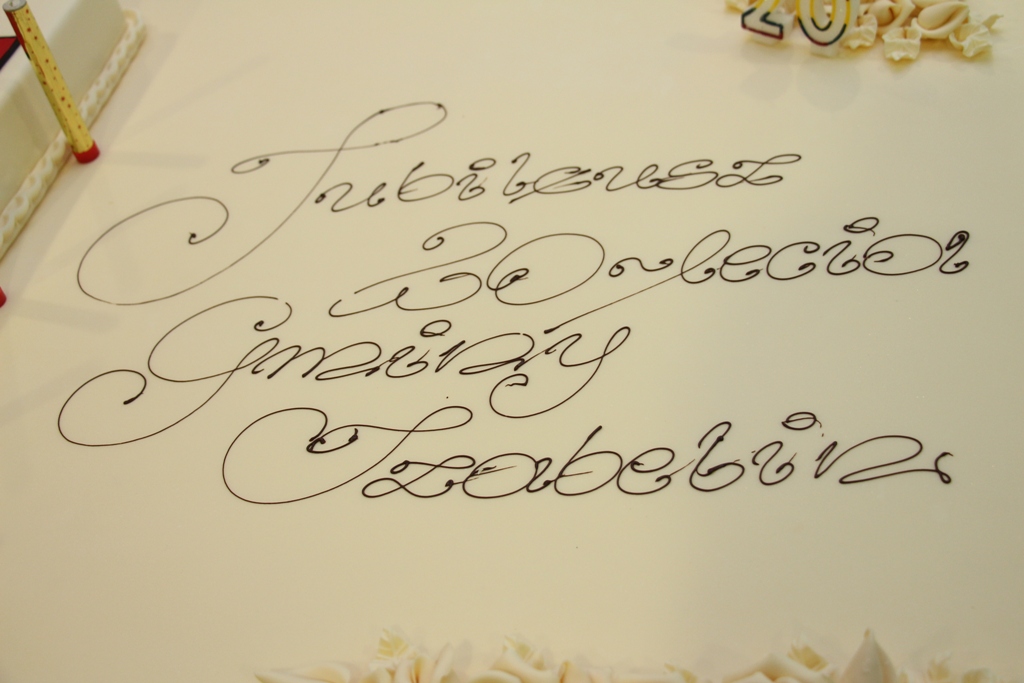 20
Jubileusz
20~lecia
Gminy
Izabelin